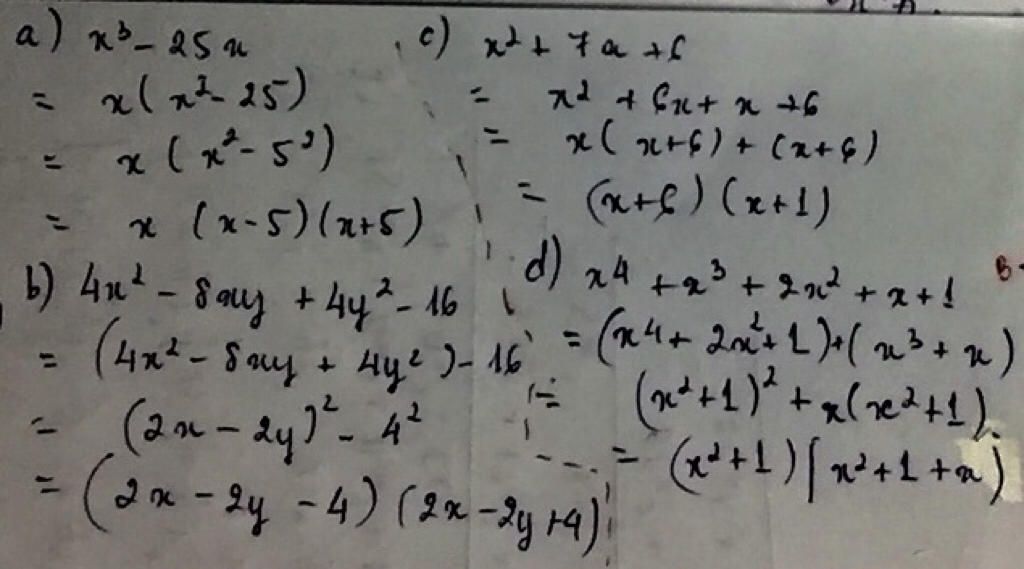 a) x³ - 25x
= x(x² - 25)
= x(x² - 5²)
= x (x-5)(x+5)
b) 4x² - 8xy + 4y² - 16
= (4x² - 8xy + 4y²) - 16
= (2x - 2y)² - 4²
= (2x - 2y - 4)(2x - 2y + 4)
c) x² + 7x + 6
= x² + 6x + x + 6
= x(x+6) + (x+6)
= (x+6)(x+1)
d) x⁴ + x³ + 2x² + x + 1
= (x⁴ + 2x² + 1) + (x³ + x)
= (x² + 1)² + x(x² + 1)
= (x² + 1)(x² + 1 + x)